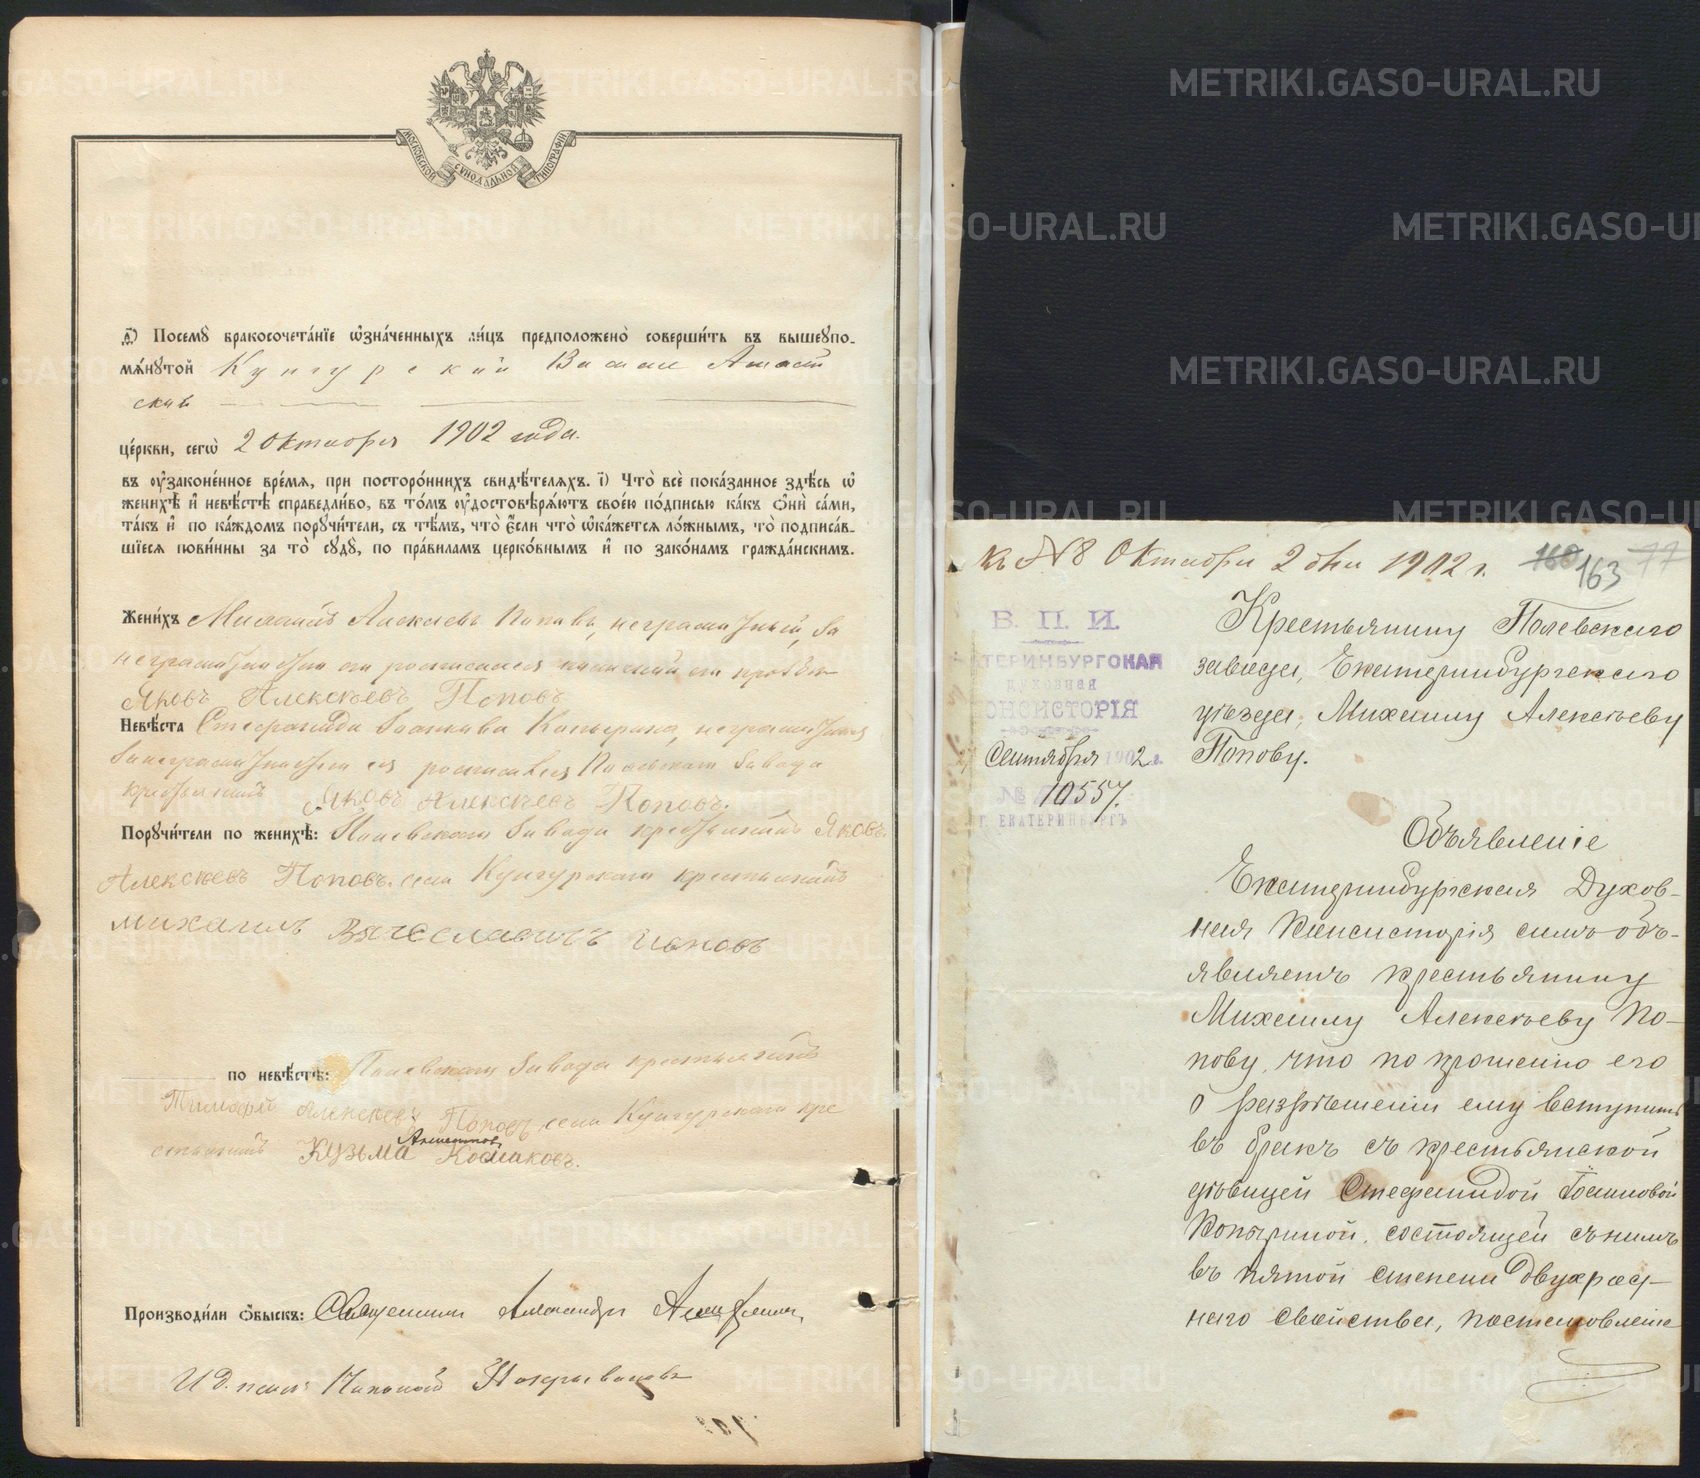 МОСКОВСКОЙ СѴНОДАЛЬНОЙ ТИПОГРАФІИ
Посемꙋ̀ бракосочета́нїе ѡ҆зна́ченныхъ ли́цъ предположено̀ соверши́ть въ вышеꙋпо-
мѧ́нꙋтой Кунгурской Вмале Апост
ской
це́ркви, сегѡ̀ 2 Октября 1902 года.
въ ᲂу҆зако́ненное вре́мѧ, при посторо́ннихъ свидѣ́телѧхъ. і҃) Что̀ всѐ пока́занное здѣ́сь ѡ҆
женихѣ̀ и҆ невѣ́стѣ справедли́во, въ то́мъ ᲂу҆достовѣрѧ́ютъ свое́ю по́дписью ка́къ ѻ҆нѝ са́ми,
та́къ и҆ по ка́ждомъ порꙋчи́тели, съ тѣ́мъ, что̀ є҆́сли что̀ ѡ҆ка́жетсѧ ло́жнымъ, то̀ подписа́в-
шїесѧ пови́нны за то̀ сꙋдꙋ̀, по пра́виламъ церко́внымъ и҆ по зако́намъ гражда́нскимъ.
Жени́хъ Михаилъ Алексѣевъ Поповъ, неграмотный, за
неграмотностію его росписался
Яковъ Алексѣевъ Поповъ
Невѣ́ста Стефанида Іоаннова Копырина, неграмотная
за неграмотностію ея росписался Полевскаго завода
крестьянинъ Яковъ Алексѣевъ Поповъ.
Порꙋчи́тели по женихѣ̀: Полевскаго завода крестьянинъ Яковъ
Алексѣевъ Поповъ. села Кунгурскаго крестьянинъ
Михаилъ Вячеславичъ Поповъ
по невѣ́стѣ: Полевскаго завода крестьянинъ
Тимофей Алексѣевъ Поповъ, села Кунгурскаго кре
стьянинъ Кузьма Космаковъ.
Производи́ли ѻ҆́быскъ: Священникъ Александръ
И д. псал. Николай
къ № 8 Октября 2 дня 1902 г. 160 163 77
В. П. И.
ЕКАТЕРИНБУРГСКАЯ
ДУХОВНАЯ
КОНСИСТОРІЯ
Сентября 1902 г.
№ 10557.
Г. ЕКАТЕРИНБУРГЪ
Крестьянину Полевскаго
завода, Екатеринбургскаго
уѣзда, Михаилу Алексѣеву
Попову.
Объявленіе
Екатеринбургская Духов-
ная Консисторія симъ объ-
являетъ крестьянину
Михаилу Алексѣеву По-
пову, что по прошенію его
о разрѣшеніи ему вступить
въ бракъ съ крестьянской
дѣвицей Стефанидой Іоанновой
Копыриной, состоящей съ нимъ
въ пятой степени двухрод-
наго свойства, постановлено
METRIKI.GASO-URAL.RU